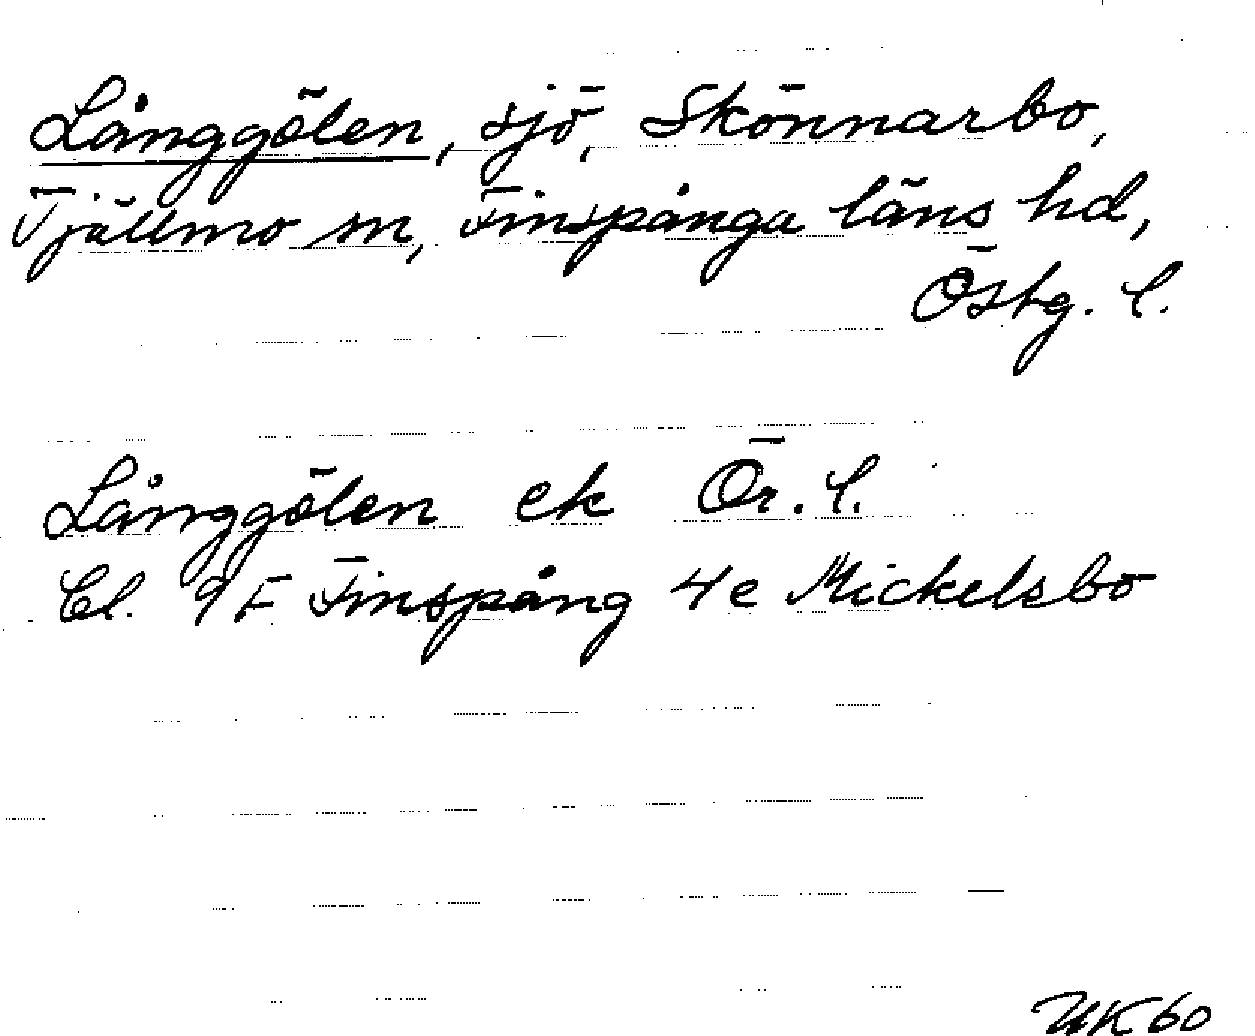 Långgölen, sjö, Skönnarbo,
Tjällmo sn, Finspånga läns hd,
Östg. l.
Långgölen ek Ör. l.
Bl. 9F Finspång 4e Mickelsbo
UK 60